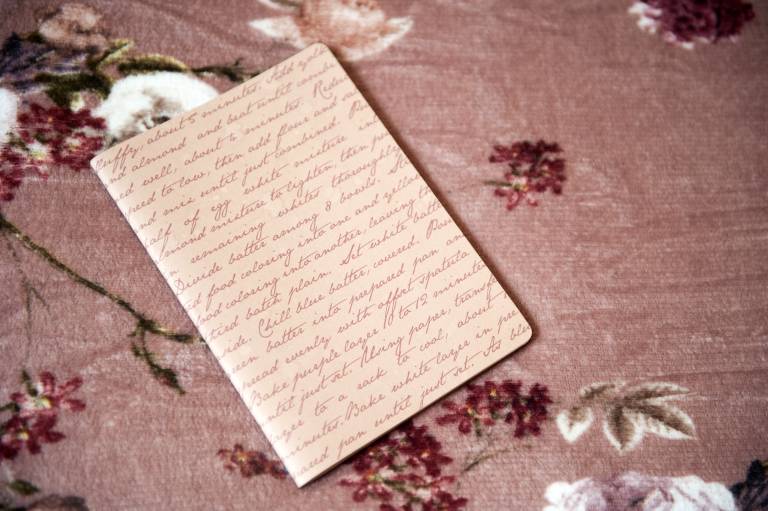 fluffy, about 5 minutes. Add
nd almond and beat until comb
d well, about 5 minutes. Redu
peed to low, then add flour and
nd mix until just combined.
half of egg white mixture int
lmond mixture to lighten, then
n remaining whites thoroughly
Divide batter among 8 bowls.
d food coloring into one and yello
ood coloring into another, leaving th
tied batch plain. Set white batt
ide. Chill blue batter, covered. Pou
een batter into prepared pan an
pread evenly with offset spatula
Bake purple layer 10 to 12 minutes
until just set. Using paper, transf
ayer to a rack to cool, about
minutes. Bake white layer in pre
ared pan until just set. As blu